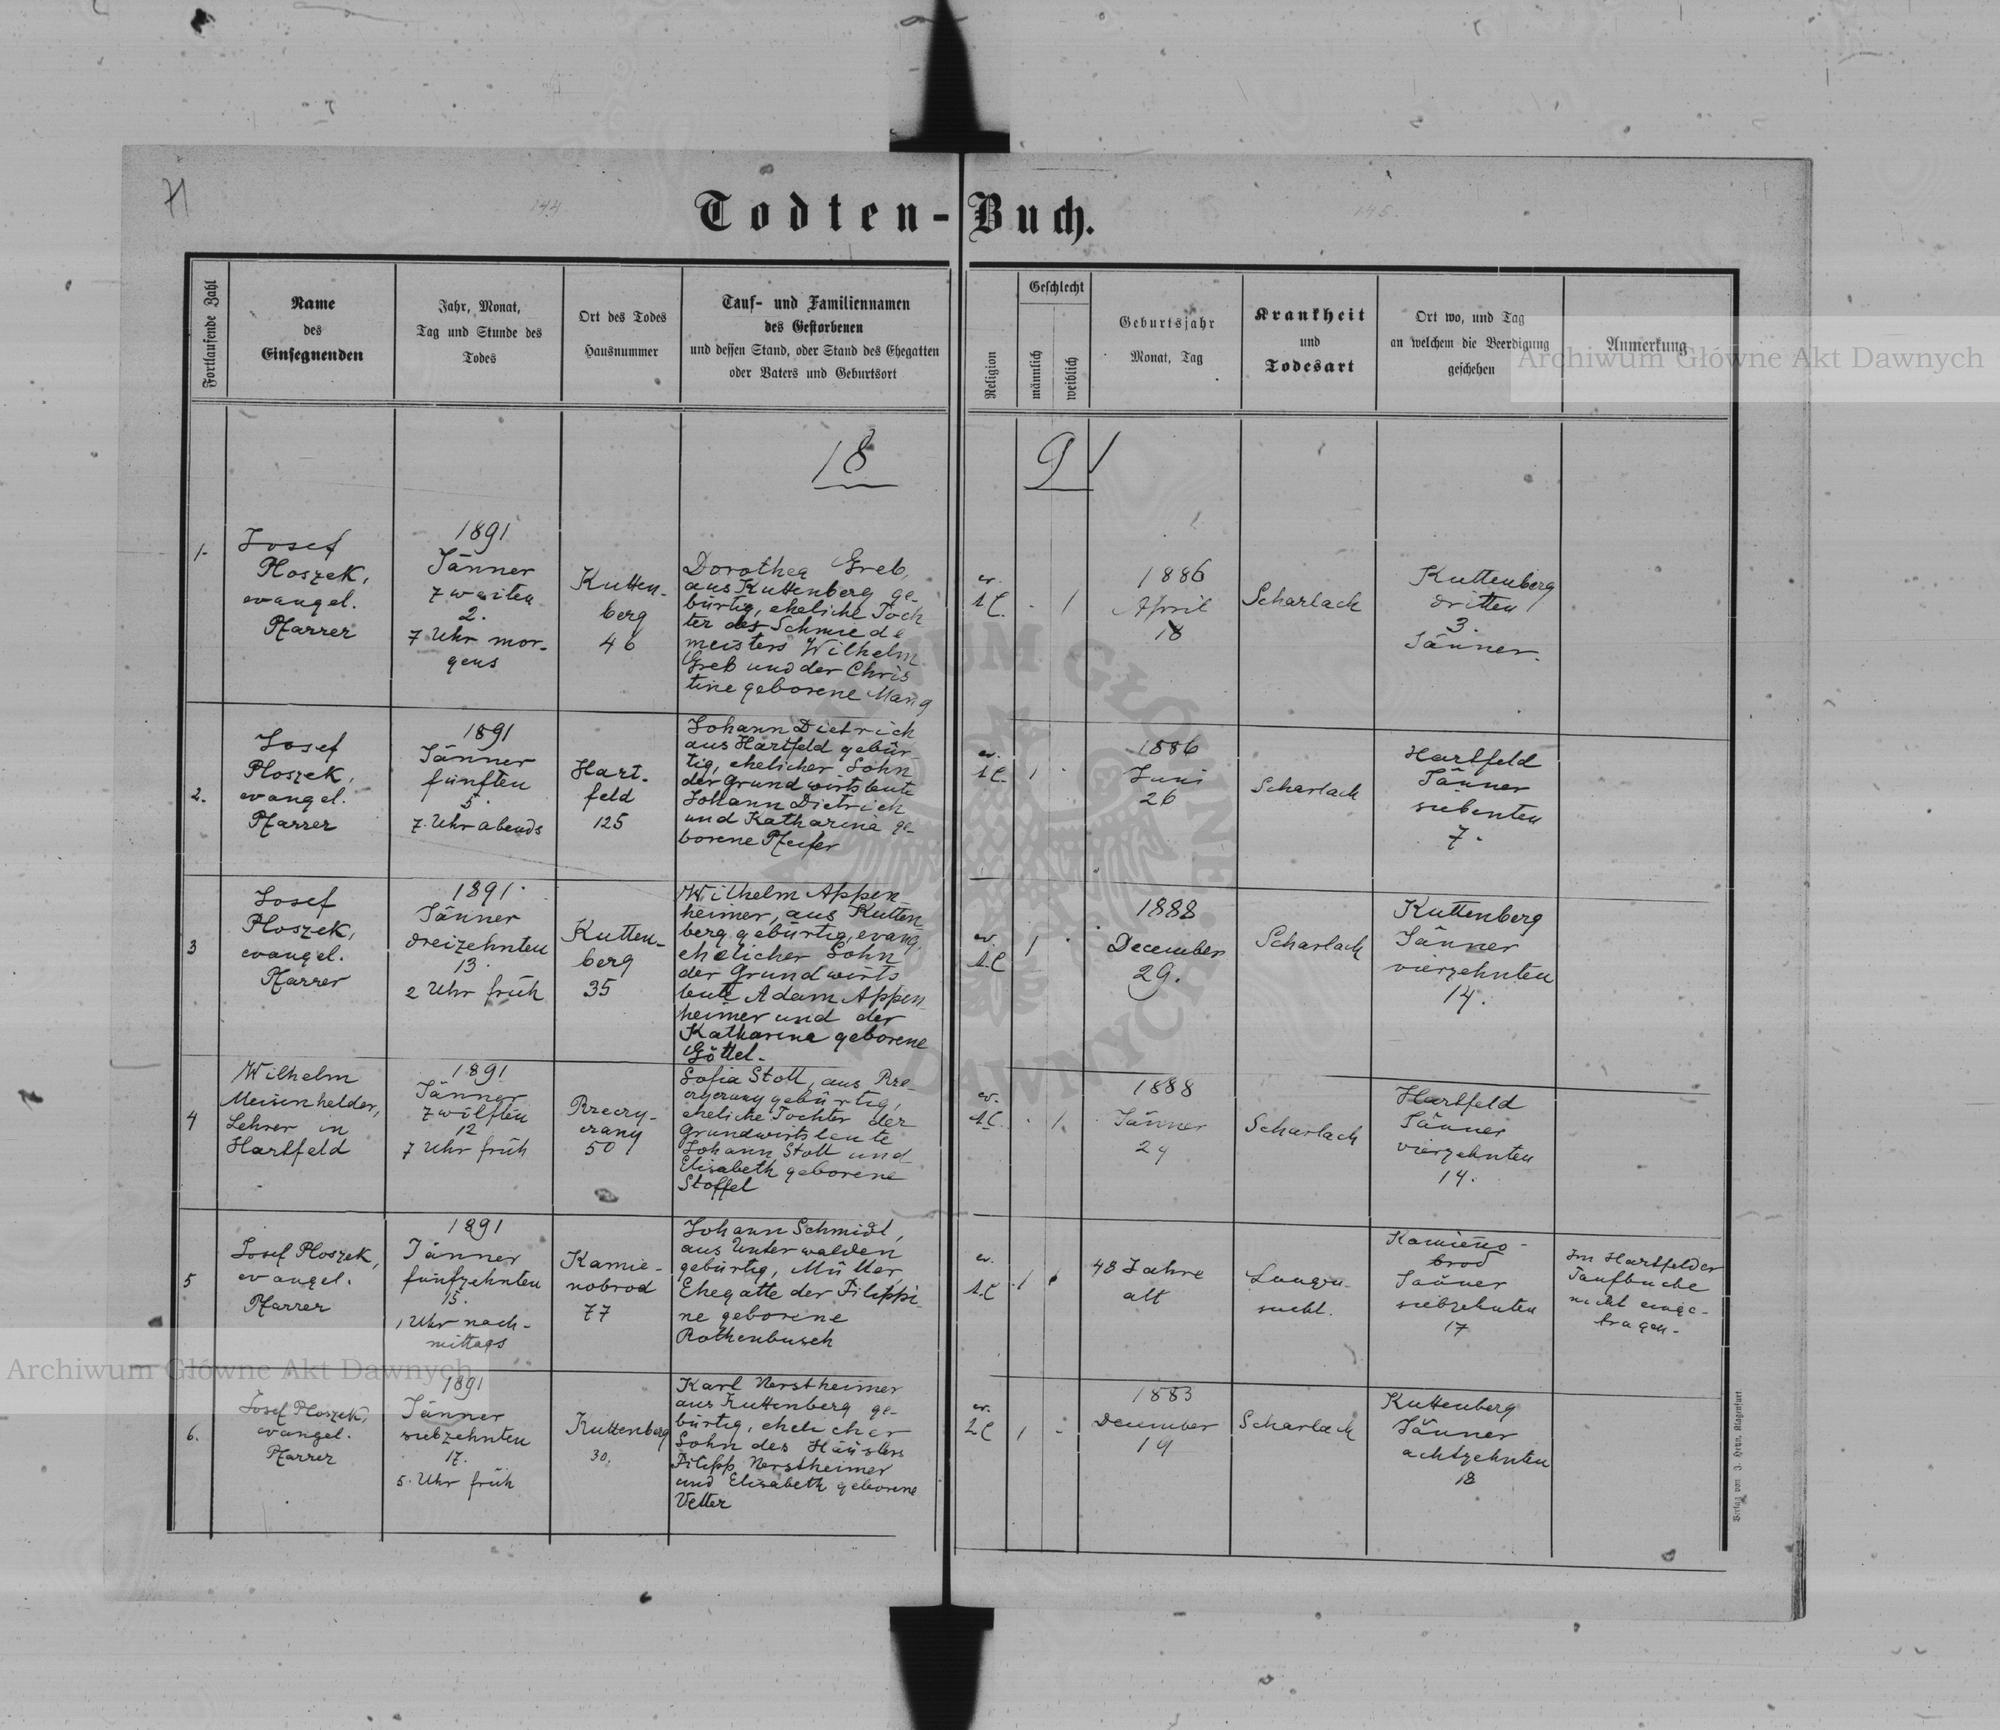 71
144
145.
Todten-Buch.
Fortlaufende Zahl
Name
des
Einsegnenden
Jahr, Monat,
Tag und Stunde des
Todes
Ort des Todes
Hausnummer
Tauf- und Familiennamen
des Gestorbenen
und dessen Stand, oder Stand des Ehegatten
oder Vaters und Geburtsort
Religion
Geschlecht
männlich
weiblich
Geburtsjahr
Monat, Tag
Krankheit
und
Todesart
Ort wo, und Tag
an welchem die Beerdigung
geschehen
Anmerkung
Archiwum Główne Akt Dawnych
18
91
1.
Josef
Ploszek,
evangel.
Pfarrer
1891
Jänner
zweiten
2.
7 Uhr mor-
gens
Kutten-
berg
46
Dorothea Greb,
aus Kuttenberg ge-
bürtig, eheliche Toch
ter des Schmiede
meisters Wilhelm
Greb und der Chris
tine geborene Mang
ev.
A.C.
- 1
1886
April
18
Scharlach
Kuttenberg
dritten
3.
Jänner.
2.
Josef
Ploszek,
evangel.
Pfarrer
1891
Jänner
fünften
5.
7. Uhr abends
Hart-
feld
125
Johann Dietrich
aus Hartfeld gebür-
tig, ehelicher Sohn
der Grundwirtsleute
Johann Dietrich
und Katharina ge-
borene Pfeifer
ev.
A.C.
1 -
1886
Juni
26
Scharlach
Hartfeld
Jänner
siebenten
7.
3
Josef
Ploszek,
evangel.
Pfarrer
1891.
Jänner
dreizehnten
13.
2 Uhr früh
Kutten-
berg
35
Wilhelm Appen-
heimer, aus Kutten
berg gebürtig, evang.
ehelicher Sohn
der Grundwirts
leute Adam Appen
heimer und der
Katharina geborene
Göttel.
ev.
A.C.
1 -
1888
December
29.
Scharlach
Kuttenberg
Jänner
vierzehnten
14.
4
Wilhelm
Meisenhelder,
Lehrer in
Hartfeld
1891
Jänner
zwölften
12
7 Uhr früh
Rzeczy-
czany
50
Sofia Stoll, aus Rze-
czyczany gebürtig,
eheliche Tochter der
Grundwirtsleute
Johann Stoll und
Elisabeth geborene
Stoffel
ev.
A.C.
- 1.
1888
Jänner
29
Scharlach
Hartfeld
Jänner
vierzehnten
14.
5
Josef Ploszek,
evangel.
Pfarrer
1891
Jänner
fünfzehnten
15.
1 Uhr nach-
mittags
Kamie-
nobrod
77
Johann Schmidt,
aus Unterwalden
gebürtig, Müller
Ehegatte der Filippi-
ne geborene
Rothenbusch
ev.
A.C.
1
48 Jahre
alt
Lungen-
sucht.
Kamieno-
brod
Jänner
siebzehnten
17
Im Hartfelder
Taufbuche
nicht einge-
tragen.
6.
Josef Ploszek,
evangel.
Pfarrer
1891
Jänner
siebzehnten
17.
5. Uhr früh
Kuttenberg
30.
Karl Werstheimer
aus Kuttenberg ge-
bürtig, ehelicher
Sohn des Häuslers
Filipp Werstheimer
und Elisabeth geborene
Vetter
ev.
A.C.
1 -
1883
December
19
Scharlach
Kuttenberg
Jänner
achtzehnten
18
Archiwum Główne Akt Dawnych
Verlag von J. Heyn, Klagenfurt
ARCHIWUM GŁÓWNE AKT DAWNYCH